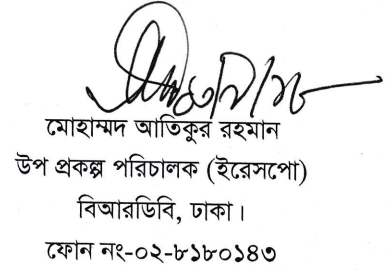 মোহাম্মদ আতিকুর রহমান
উপ প্রকল্প পরিচালক (ইরেসপো)
বিআরডিবি, ঢাকা।
ফোন নং-০২-৮১৮০১৪৩